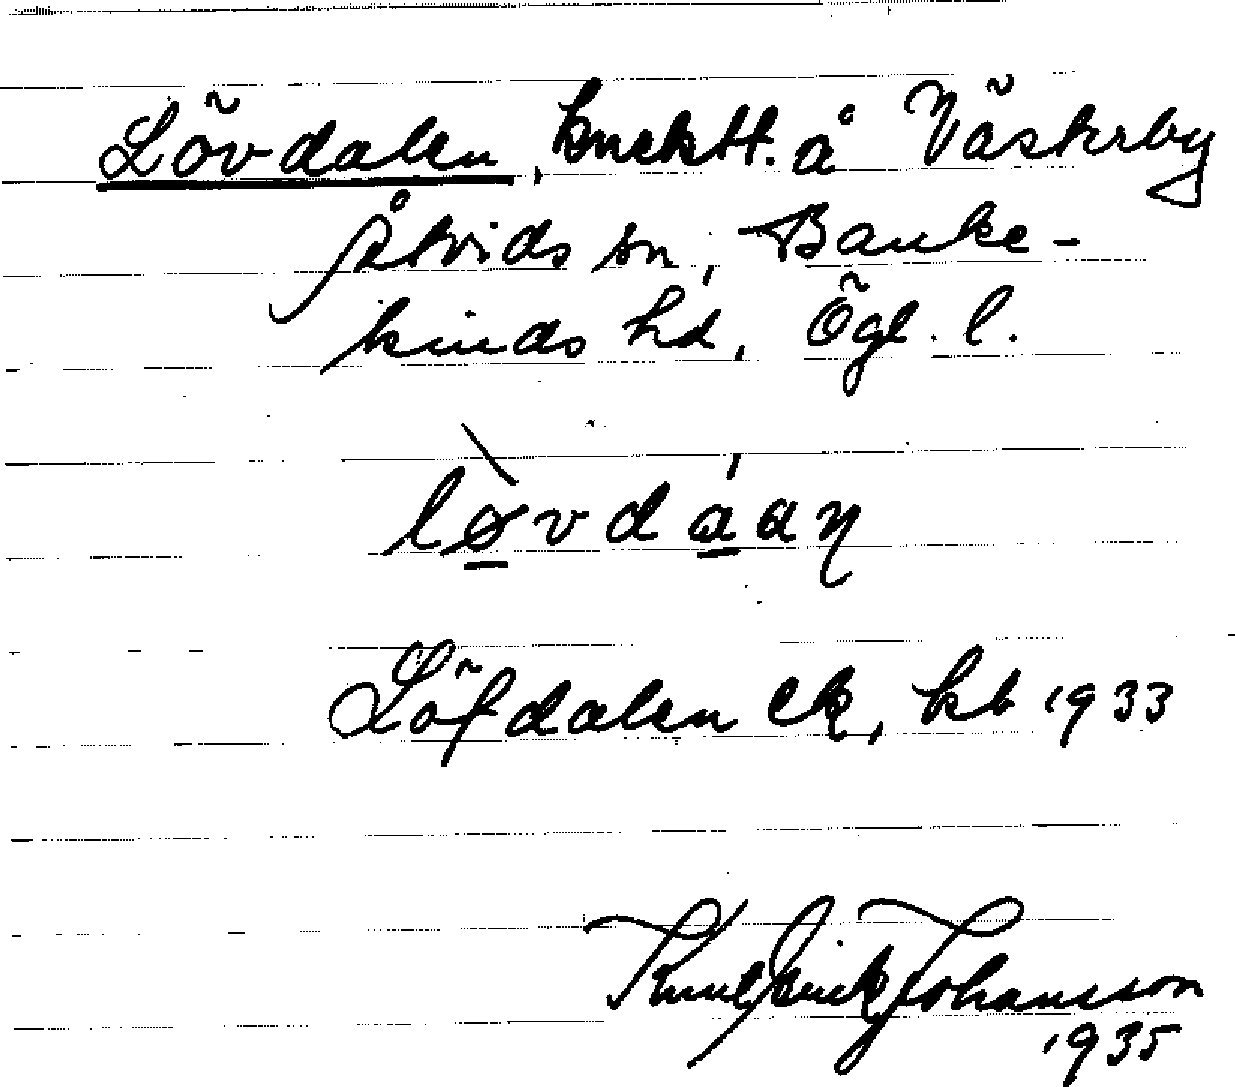 Lövdalen, knektt. å Västerby
Åtvids sn, Banke-
kinds hd, Ögl. l.
løvdáan
Löfdalen ek, kb 1933
Johansson
1935